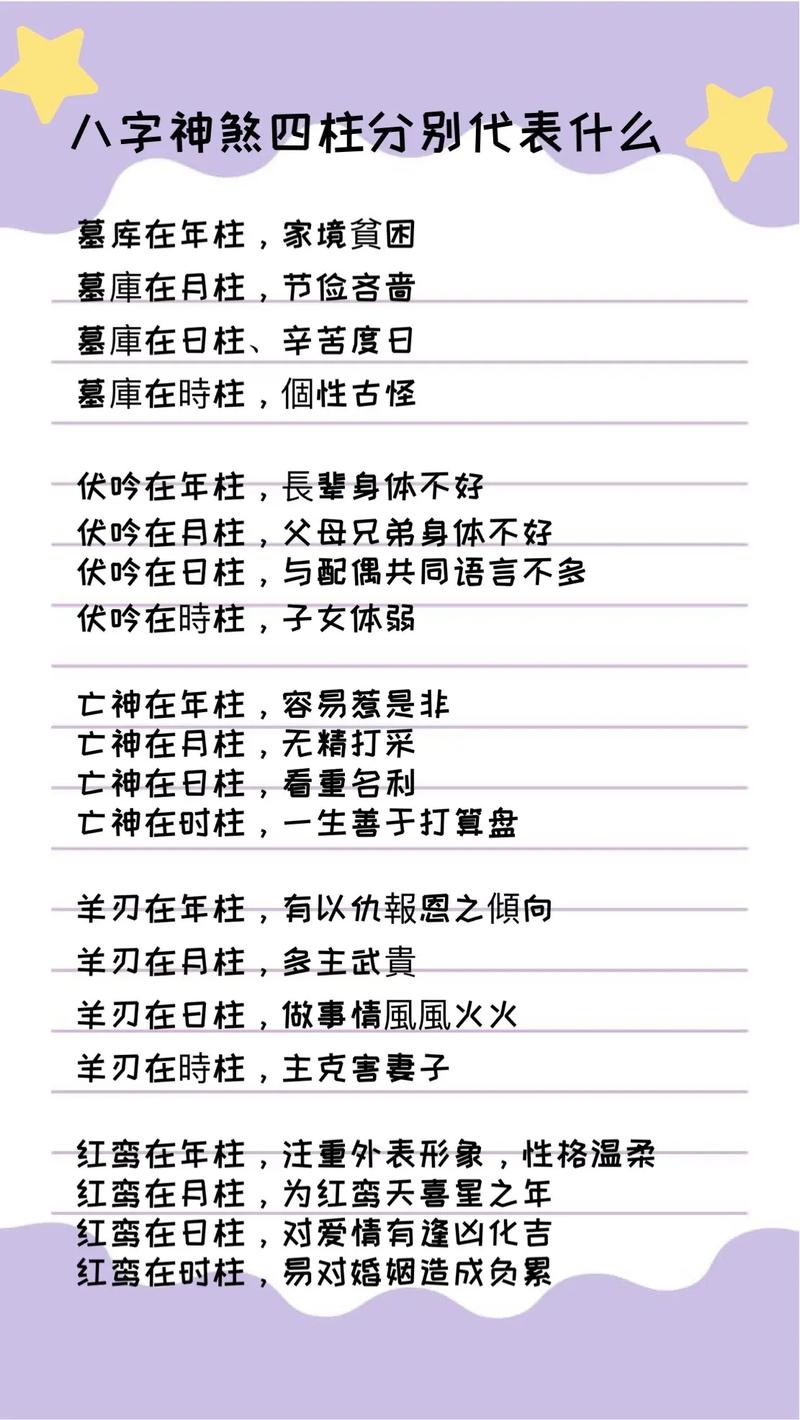 八字神煞四柱分别代表什么
墓库在年柱，家境貧困
墓庫在月柱，节俭吝啬
墓庫在日柱、辛苦度日
墓庫在時柱，個性古怪
伏吟在年柱，長辈身体不好
伏吟在月柱，父母兄弟身体不好
伏吟在日柱，与配偶共同语言不多
伏吟在時柱，子女体弱
亡神在年柱，容易惹是非
亡神在月柱，无精打采
亡神在日柱，看重名利
亡神在时柱，一生善于打算盘
羊刃在年柱，有以仇報恩之傾向
羊刃在月柱，多主武貴
羊刃在日柱，做事情風風火火
羊刃在時柱，主克害妻子
红鸾在年柱，注重外表形象，性格温柔
红鸾在月柱，为红鸾天喜星之年
红鸾在日柱，对爱情有逢凶化吉
红鸾在时柱，易对婚姻造成负累